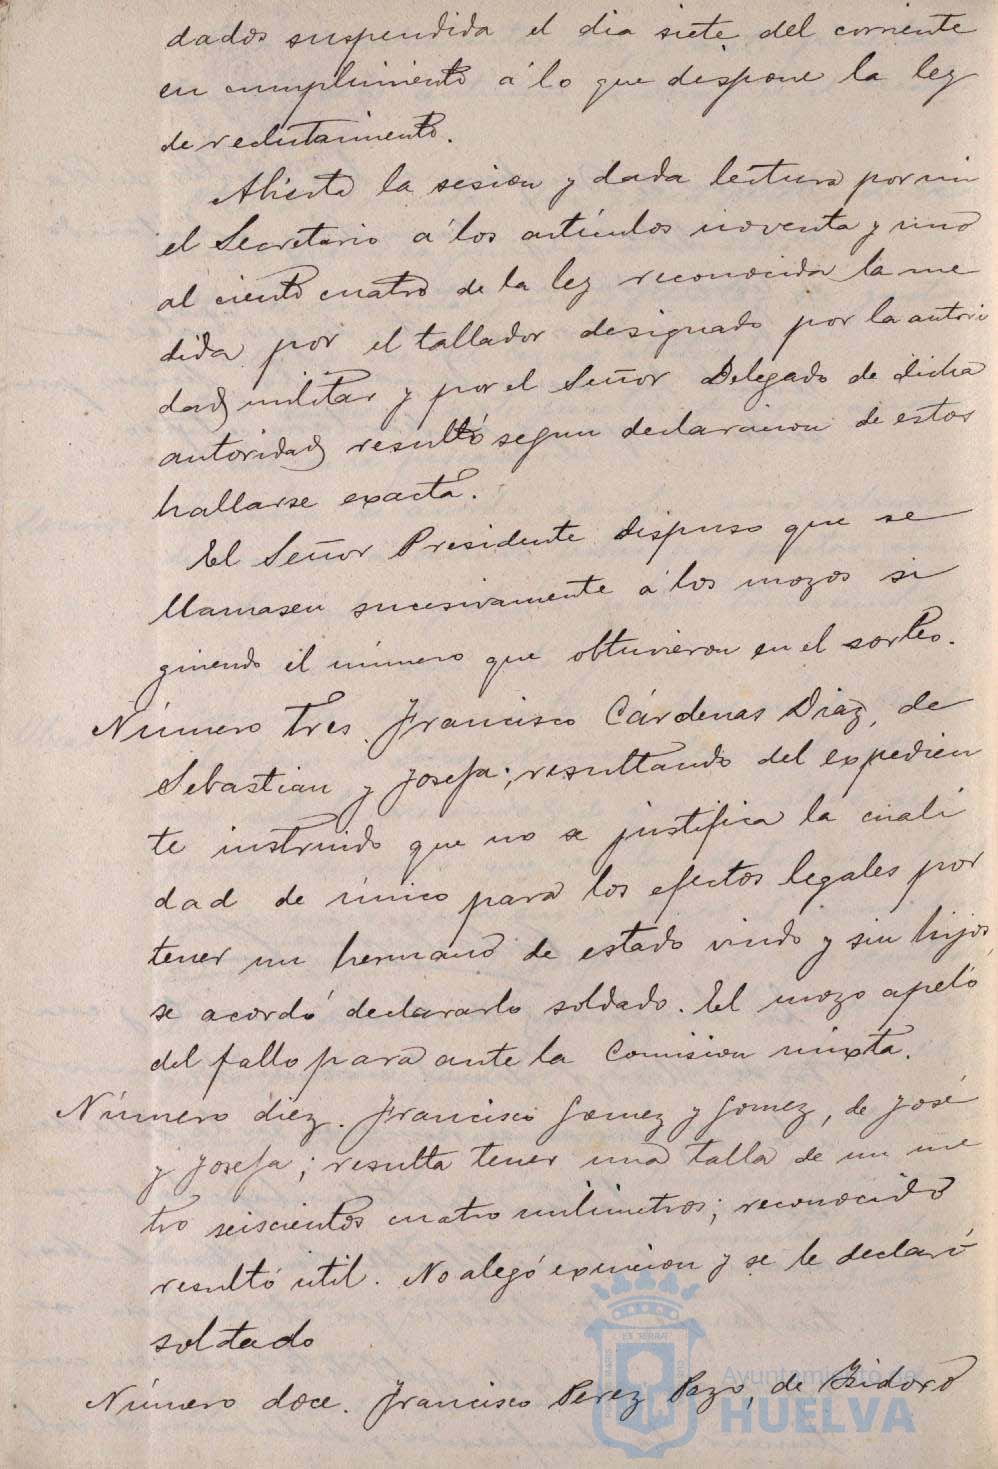 dados suspendida el dia siete del corriente
en cumplimiento á lo que dispone la ley
de reclutamiento.
Abierta la sesion y dada lectura por mi
el Secretario á los artículos noventa y uno
al ciento cuatro de la ley reconocida la me
dida por el tallador designado por la autori
dad militar y por el Señor Delegado de dicha
autoridad resultó segun declaracion de estos
hallarse exacta.
El Señor Presidente dispuso que se
llamasen sucesivamente á los mozos si
giuendo el número que obtuvieron en el sorteo.
Número tres. Francisco Cárdenas Diaz, de
Sebastian y Josefa; resultando del expedien
te instruido que no se justifica la cuali
dad de único para los efectos legales por
tener un hermano de estado viudo y sin hijos,
se acordó declararlo soldado. El mozo apeló
del fallo para ante la Comision mixta.
Número diez. Francisco Gomez y Gomez, de José
y Josefa; resulta tener una talla de un me
tro seiscientos cuatro milimetros; reconocido
resultó útil. No alegó exencion y se le declaró
soldado
Número doce. Francisco Perez Pazo, de Isidoro
Ayuntamiento de
HUELVA